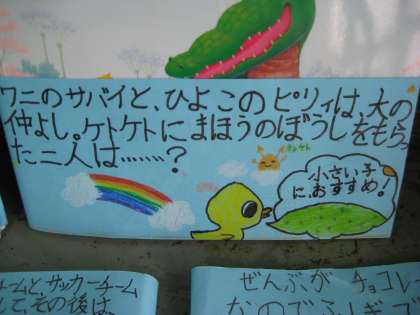 ワニのサバイと、ひよこのピリィは、大の
仲よし。ケトケトにまほうのぼうしをもらっ
た二人は……？
ケトケト
小さい子
に、おすすめ！
ームと、サッカーチーム
して、その後は、
ぜんぶが チョコレ
なのでふしぎコ